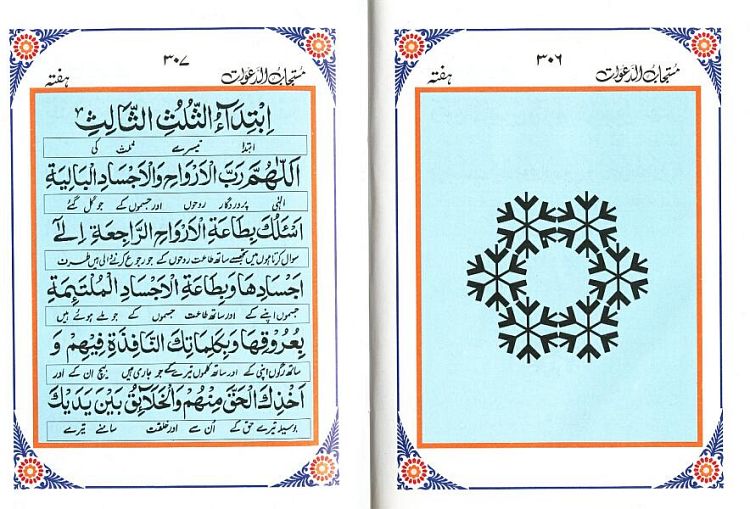 مستجاب الدعوات ۳۰۶ ہفتہ
مستجاب الدعوات ۳۰۷ ہفتہ
اِبْتِدَآءُ الثُّلُثِ الثَّالِثِ
ابتدا تیسرے ثلث کی
اَللّٰهُمَّ رَبَّ الْاَرْوَاحِ وَالْاَجْسَادِ الْبَالِيَةِ
الٰہی پروردگار روحوں اور جسموں کے جو گل گئے
اَسْئَلُكَ بِطَاعَةِ الْاَرْوَاحِ الرَّاجِعَةِ اِلٰٓى
سوال کرتا ہوں میں تجھسے ساتھ طاعت روحوں کے جو رجوع کرنے والی ہیں طرف
اَجْسَادِهَا وَبِطَاعَةِ الْاَجْسَادِ الْمُلْتَئِمَةِ
جسموں اپنے کے اور ساتھ طاعت جسموں کے جو ملے ہوئے ہیں
بِعُرُوْقِهَا وَبِكَلِمَاتِكَ النَّافِذَةِ فِيْهِمْ وَ
ساتھ رگوں اپنی کے اور ساتھ کلموں تیرے کے جو جاری ہیں بیچ ان کے اور
اَخْذِكَ الْحَقَّ مِنْهُمْ وَالْخَلَآئِقُ بَيْنَ يَدَيْكَ
تیرے حق کے اُن سے اور خلقت سامنے تیرے